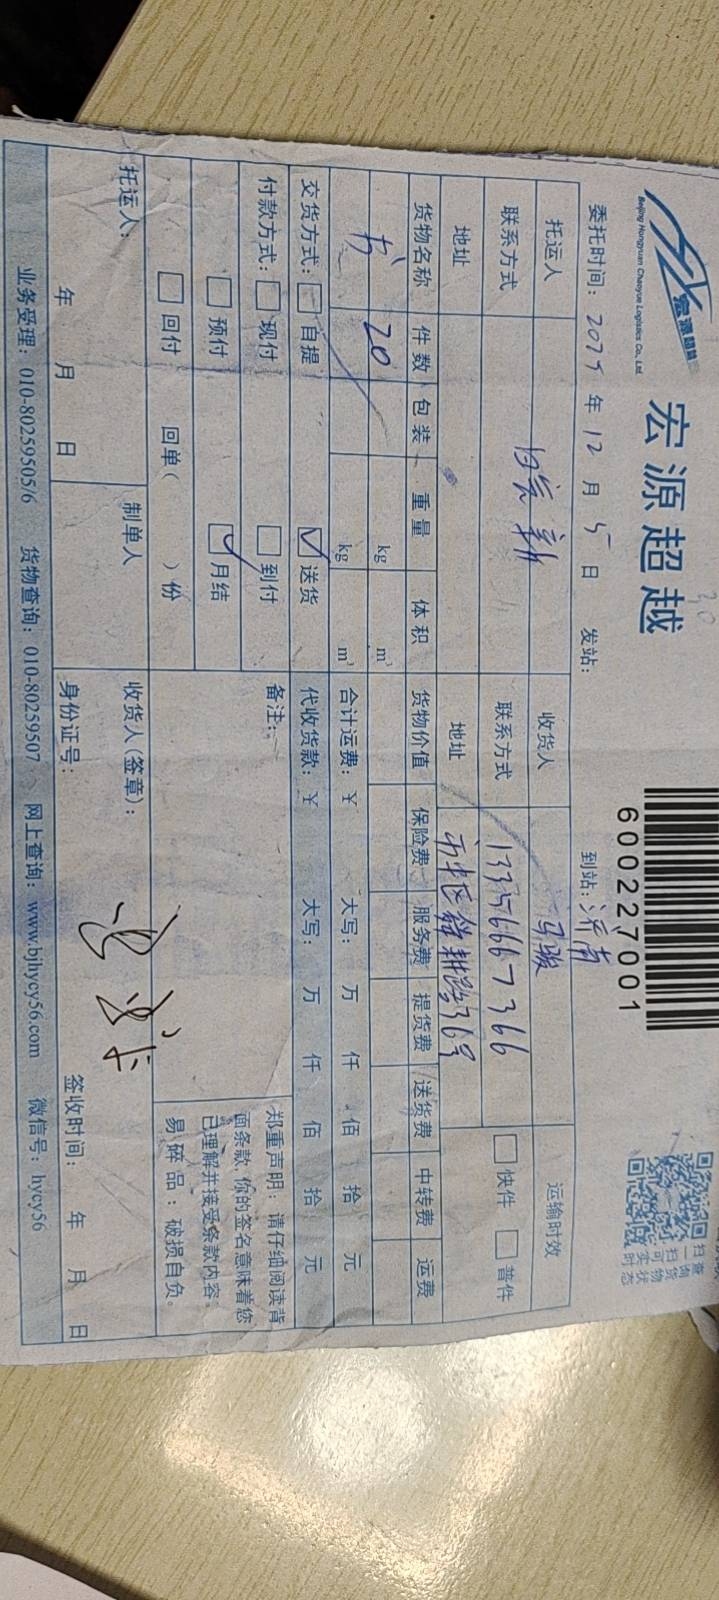 宏源超越
Beijing Hongyuan Chaoyue Logistics Co., Ltd.
宏源超越
600227001
扫查
一询
扫货
可物
实状
时态
委托时间: 年 12 月 5 日 发站: 到站: 济南
托运人 收货人 马骏 运输时效
联系方式 联系方式 13356667366 快件 普件
地址 地址 市中区舜耕路36号
货物名称 件数 包装 重量 体积 货物价值 保险费 服务费 提货费 送货费 中转费 运费
书 20 kg m³
kg m³ 合计运费: ¥ 大写: 万 仟 佰 拾 元
交货方式: 自提 送货 代收货款: ¥ 大写: 万 仟 佰 拾 元
付款方式: 现付 到付 备注:
预付 月结
回付 回单( )份
郑重声明: 请仔细阅读背
面条款, 你的签名意味着您
已理解并接受条款内容。
易碎品: 破损自负。
托运人: 制单人 收货人(签章):
年 月 日 身份证号: 签收时间: 年 月 日
业务受理: 010-80259505/6 货物查询: 010-80259507 网上查询: www.bjhycy56.com 微信号: hycy56